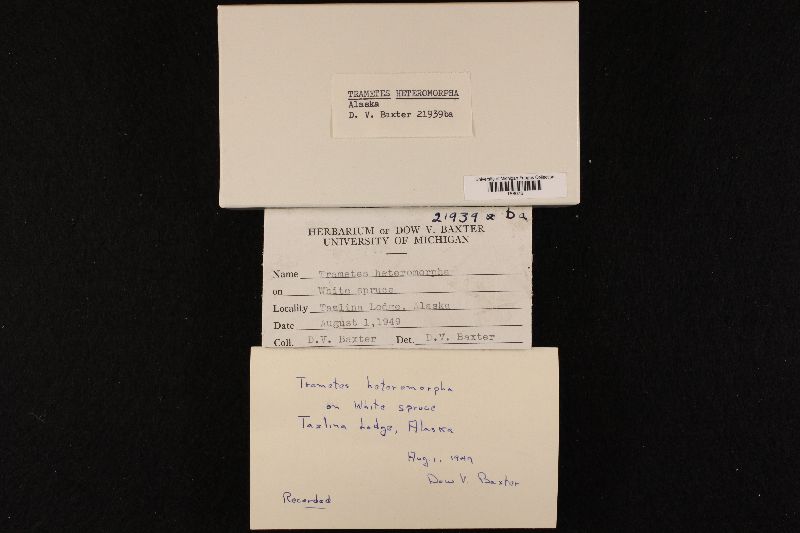 TRAMETES HETEROMORPHA
Alaska
D. V. Baxter 21939ba
University of Michigan Fungus Collection
21939 a ba
HERBARIUM OF DOW V. BAXTER
UNIVERSITY OF MICHIGAN
Name Trametes heteromorpha
on White spruce
Locality Tazlina Lodge, Alaska
Date August 1, 1949
Coll. D.V. Baxter Det. D.V. Baxter
Trametes heteromorpha
on White spruce
Tazlina Lodge, Alaska
Aug. 1, 1949
Dow V. Baxter
Recorded